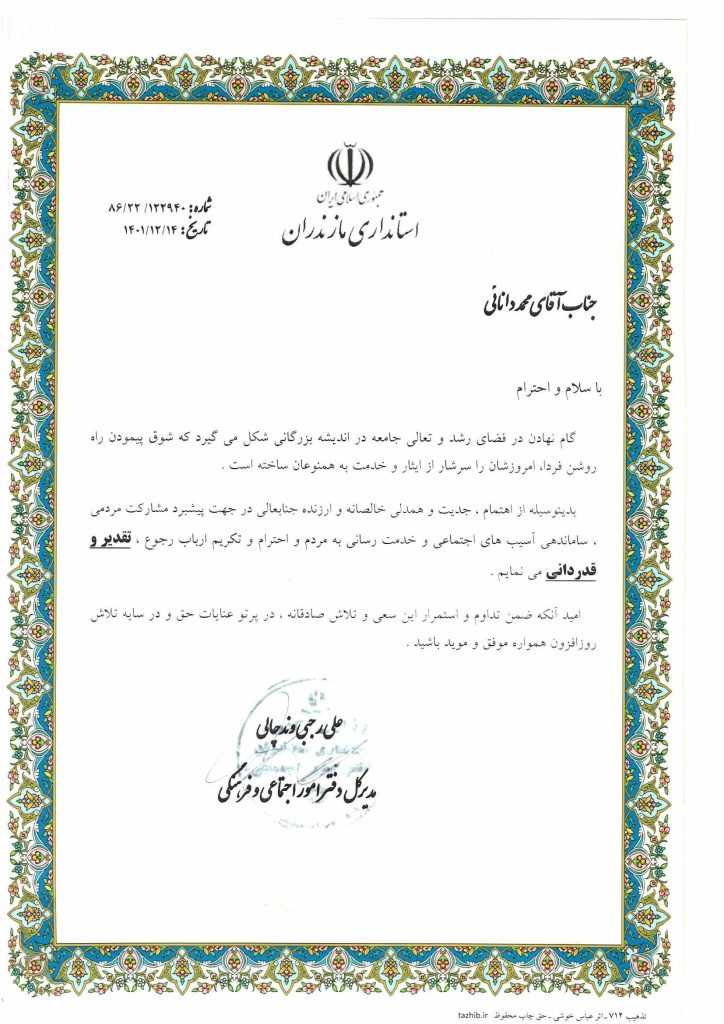 جمهوری اسلامی ایران
استانداری مازندران
شماره: ۸۶/۲۲/ ۱۲۲۹۴۰
تاریخ: ۱۴۰۱/۱۲/۱۴
جناب آقای محمد دانائی
با سلام و احترام
گام نهادن در فضای رشد و تعالی جامعه در اندیشه بزرگانی شکل می گیرد که شوق پیمودن راه
روشن فردا، امروزشان را سرشار از ایثار و خدمت به همنوعان ساخته است .
بدینوسیله از اهتمام ، جدیت و همدلی خالصانه و ارزنده جنابعالی در جهت پیشبرد مشارکت مردمی
، ساماندهی آسیب های اجتماعی و خدمت رسانی به مردم و احترام و تکریم ارباب رجوع ، تقدیر و
قدردانی می نمایم .
امید آنکه ضمن تداوم و استمرار این سعی و تلاش صادقانه ، در پرتو عنایات حق و در سایه تلاش
روزافزون همواره موفق و موید باشید .
علی رجبی وندچالی
مدیرکل دفتر امور اجتماعی و فرهنگی
تذهیب ۷۱۲ ـ اثر عباس خوشی ـ حق چاپ محفوظ tazhib.ir